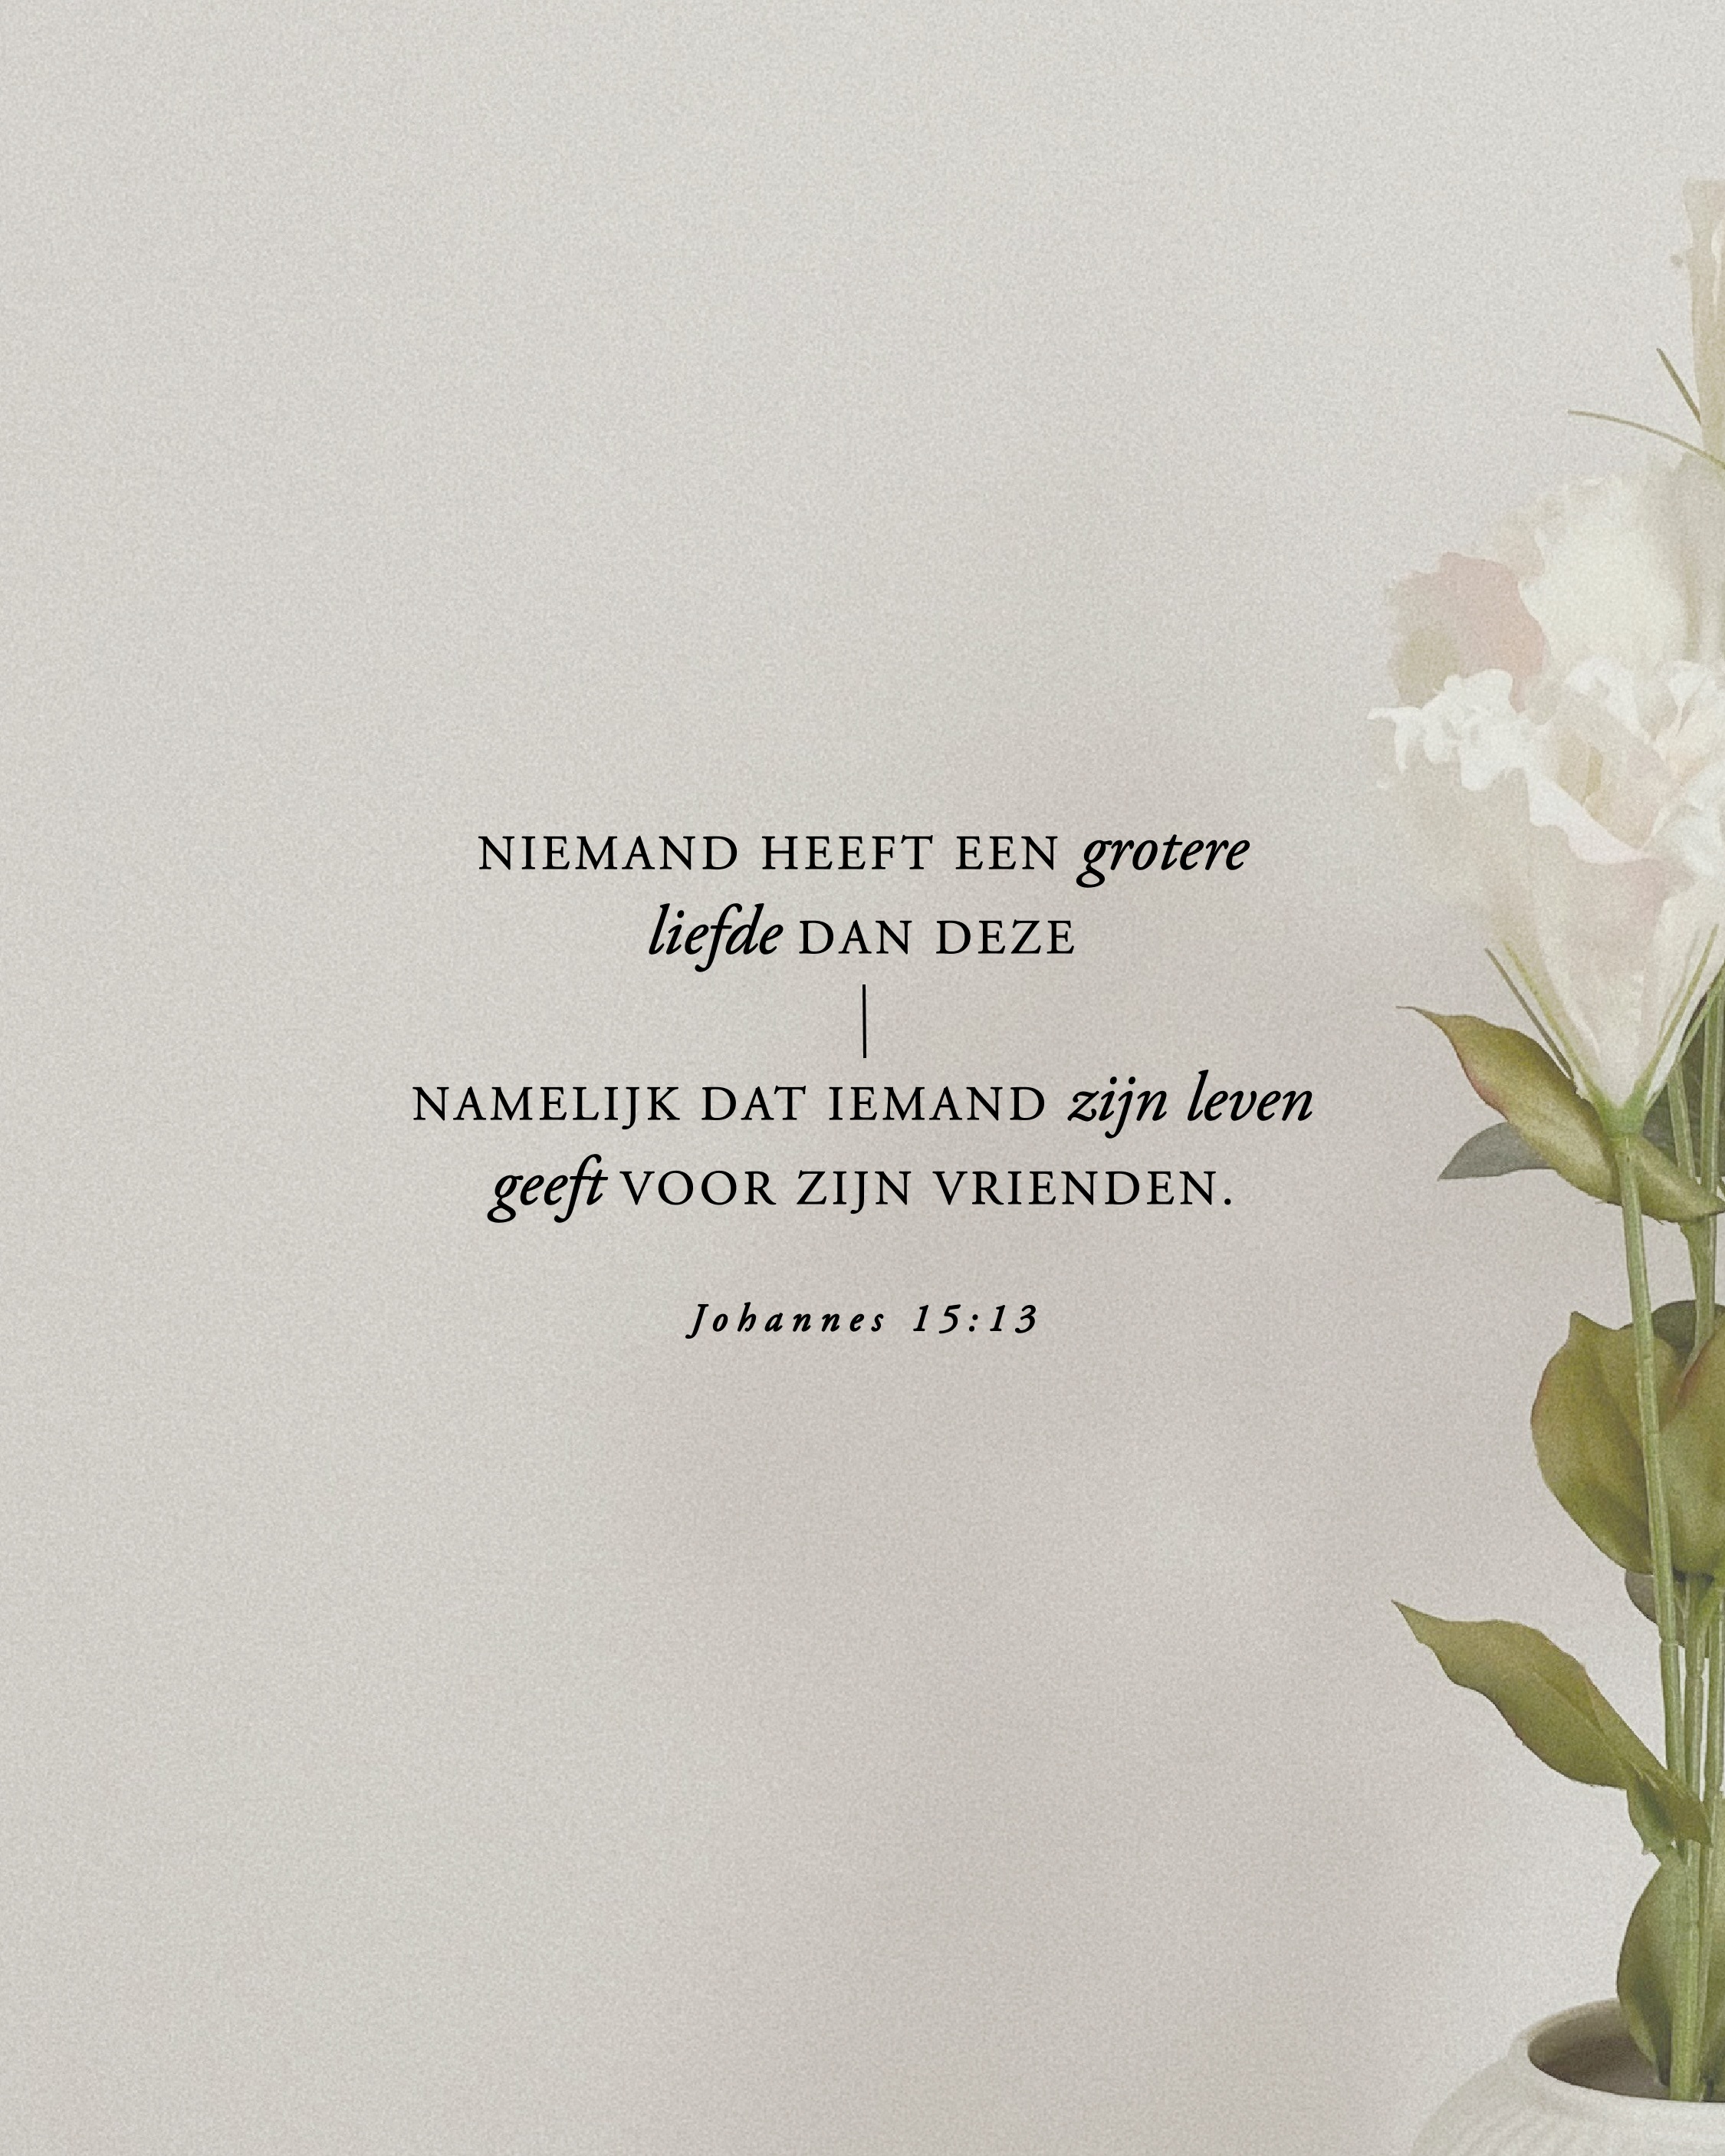 NIEMAND HEEFT EEN grotere
liefde DAN DEZE
NAMELIJK DAT IEMAND zijn leven
geeft VOOR ZIJN VRIENDEN.
Johannes 15:13